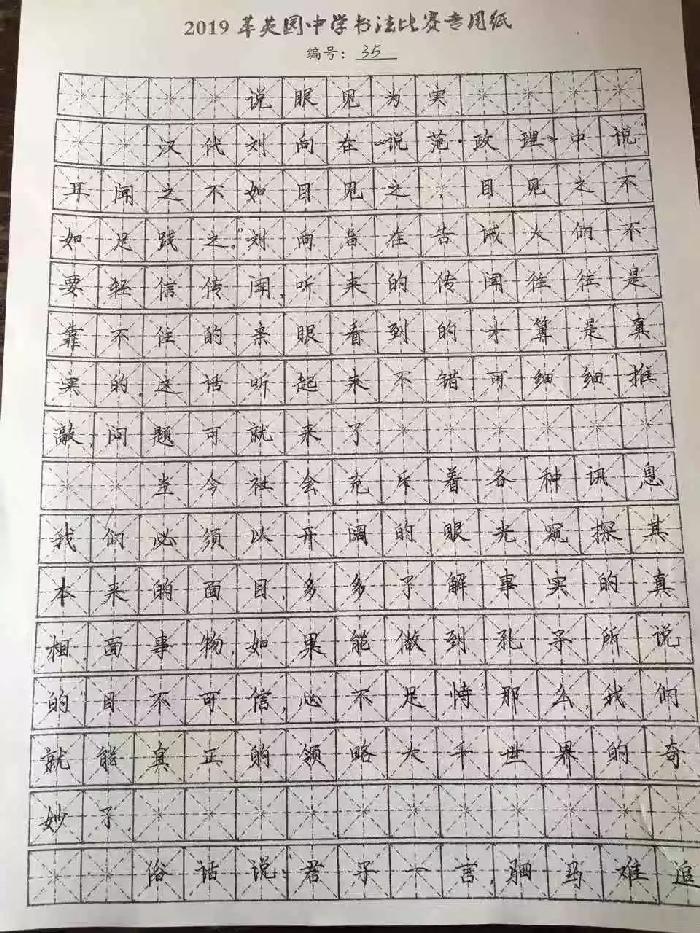 2019 莘英园中学书法比赛专用纸
编号：35
说眼见为实
汉代刘向在《说苑·政理》中说
耳闻之不如目见之，目见之不
如足践之。”刘向旨在告诫人们不
要轻信传闻，听来的传闻往往是
靠不住的，亲眼看到的才算是真
实的，这话听起来不错可细细推
敲，问题可就来了
当今社会充斥着各种讯息
我们必须以开阔的眼光，窥探其
本来的面目，多多了解事实的真
相，面事物，如果能做到孔子所说
的目不可信，心不足恃，那么，我们
就能真正的领略大千世界的奇
妙了
俗话说：君子一言，驷马难追